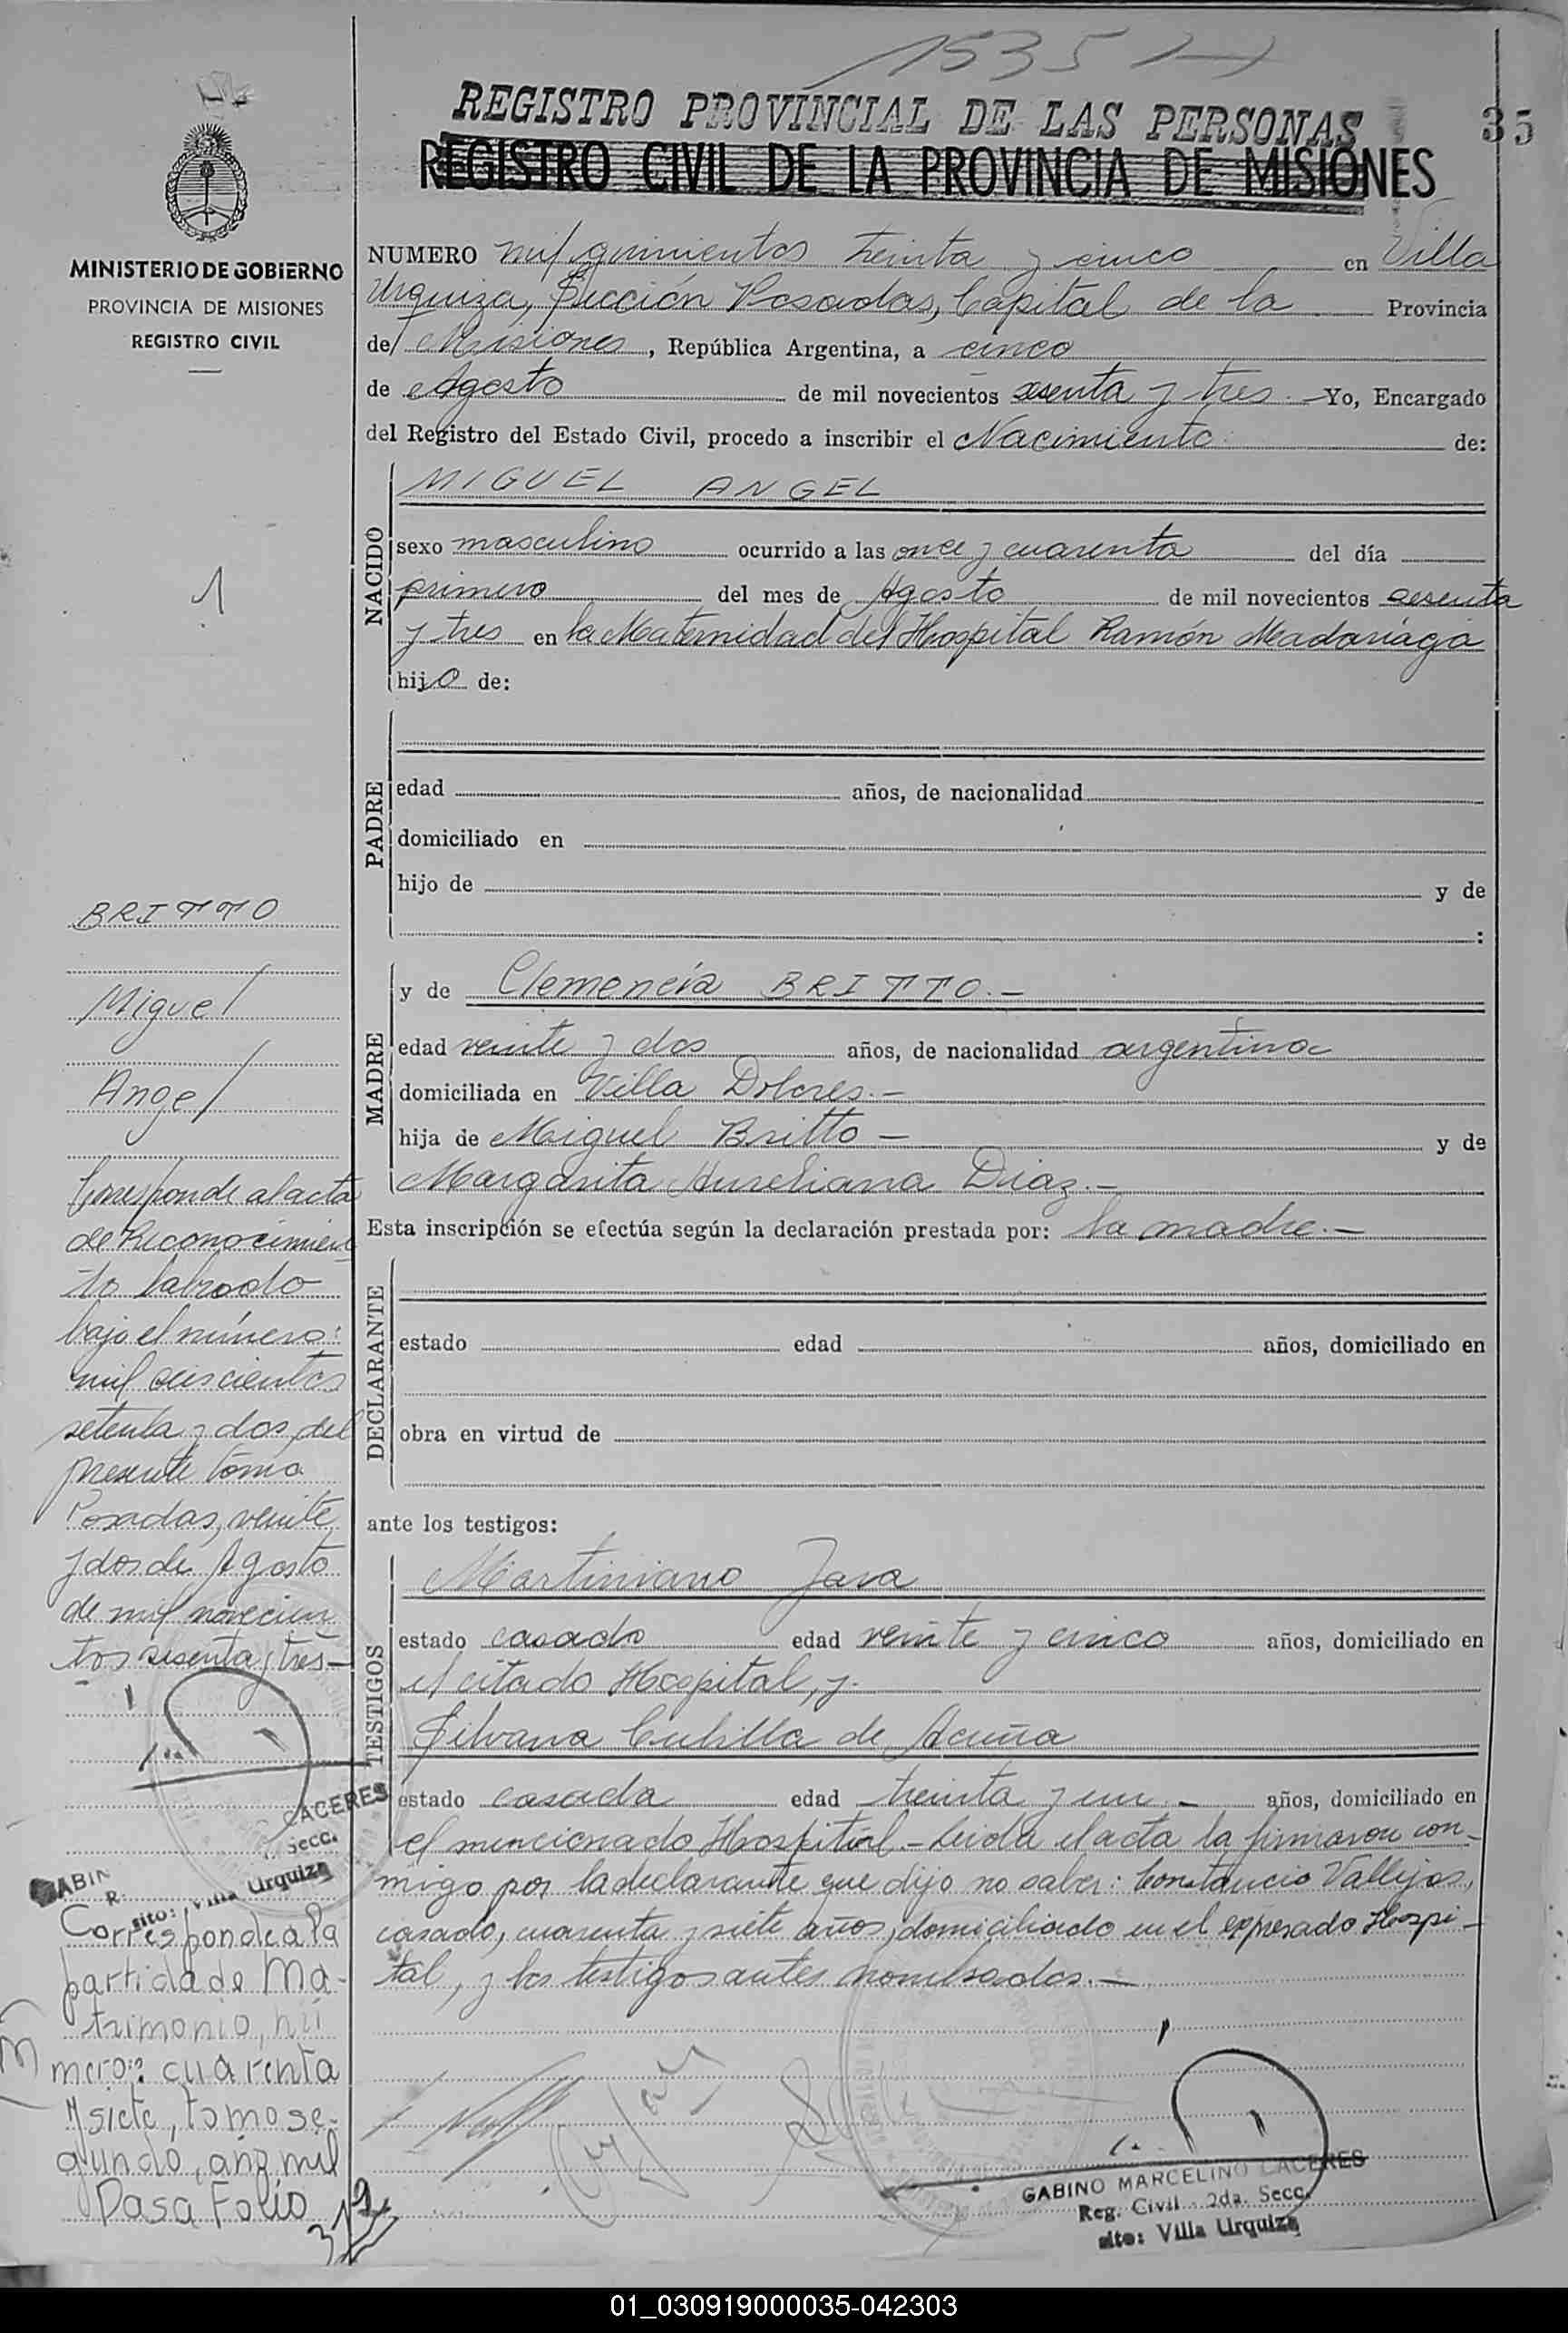 1535
REGISTRO PROVINCIAL DE LAS PERSONAS
35
REGISTRO CIVIL DE LA PROVINCIA DE MISIONES
MINISTERIO DE GOBIERNO
PROVINCIA DE MISIONES
REGISTRO CIVIL
1
NUMERO mil quinientos treinta y cinco en Villa
Urquiza, Sección Posadas, Capital de la Provincia
de Misiones, República Argentina, a cinco
de Agosto de mil novecientos sesenta y tres.- Yo, Encargado
del Registro del Estado Civil, procedo a inscribir el Nacimiento de:
NACIDO
MIGUEL ANGEL
sexo masculino ocurrido a las once y cuarenta del día
primero del mes de Agosto de mil novecientos sesenta
y tres en la Maternidad del Hospital Ramón Madariaga
hijo de:
PADRE
edad años, de nacionalidad
domiciliado en
hijo de y de
:
MADRE
y de Clemencia BRITTO.-
edad veinte y dos años, de nacionalidad argentina
domiciliada en Villa Dolores.-
hija de Miguel Britto - y de
Margarita Aureliana Diaz.-
Esta inscripción se efectúa según la declaración prestada por: la madre.-
DECLARANTE
estado edad años, domiciliado en
obra en virtud de
ante los testigos:
TESTIGOS
Martiniano Jara
estado casado edad veinte y cinco años, domiciliado en
el citado Hospital, y.
Silvana Cubilla de Acuña
estado casada edad treinta y un - años, domiciliado en
el mencionado Hospital.- Leida el acta la firmaron con-
migo por la declarante que dijo no saber: Constancio Vallejos,
casado, cuarenta y siete años, domiciliado en el expresado Hospi-
tal, y los testigos antes nombrados.-
GABINO MARCELINO CACERES
Reg. Civil - 2da. Secc.
sito: Villa Urquiza
BRITTO
Miguel
Angel
Corresponde al acta
de Reconocimien
to labrado
bajo el número:
mil seiscientos
setenta y dos del
presente tomo
Posadas, veinte
y dos de Agosto
de mil novecien
tos sesenta y tres-
GABIN
CACERES
R.
Secc.
sito: Villa Urquiza
Corresponde a la
partida de Ma-
trimonio, nú
mero: cuarenta
y siete, tomo se-
gundo, año mil
Pasa Folio
01_030919000035-042303